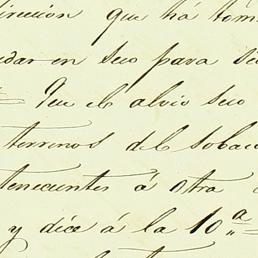 que há tóm
en seco para
= Que el alvio seco
terrenos del
tenecientes á otra
y dice á la 10ª =